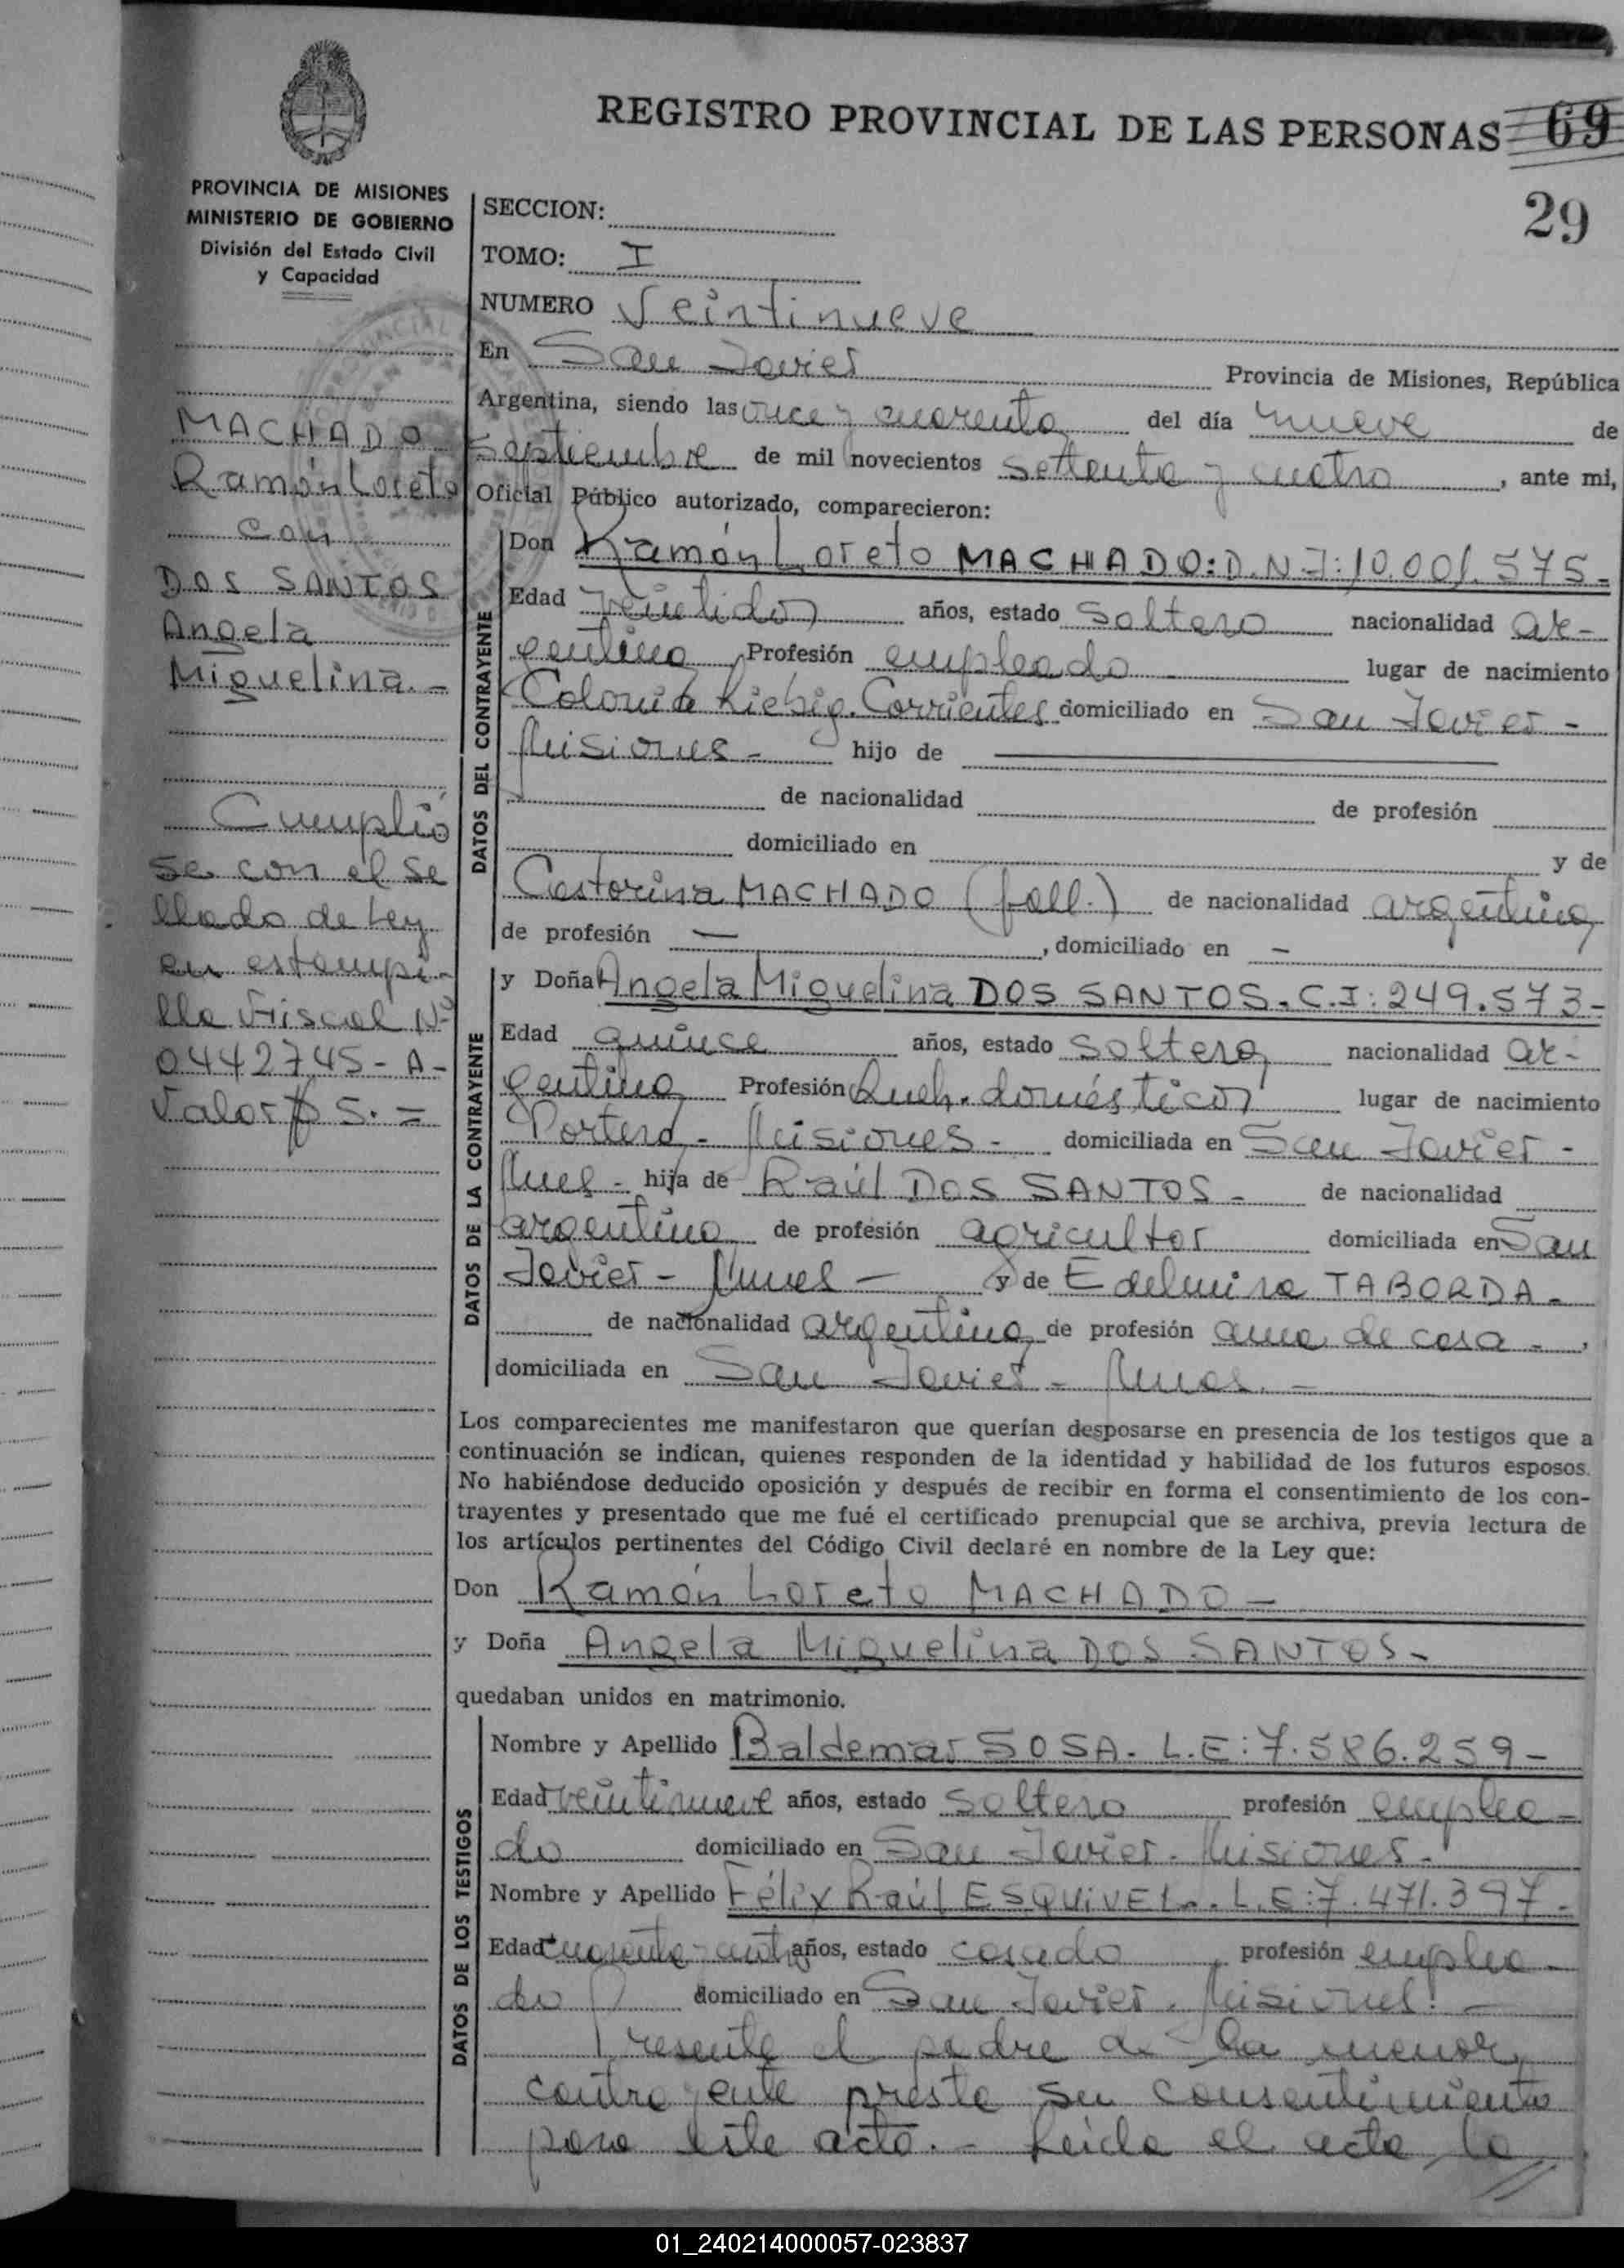 REGISTRO PROVINCIAL DE LAS PERSONAS 69
29
PROVINCIA DE MISIONES
MINISTERIO DE GOBIERNO
División del Estado Civil
y Capacidad
MACHADO
Ramón Loreto
con
DOS SANTOS
Angela
Miguelina.-
Cumplió
se con el se
llado de Ley
en estampi-
lla Friscal Nº
0442745-A-
Valor $ 5.=
SECCION:
TOMO: I
NUMERO Veintinueve
En San Javier Provincia de Misiones, República
Argentina, siendo las once y cuarenta del día nueve de
septiembre de mil novecientos settenta y cuatro, ante mi,
Oficial Público autorizado, comparecieron:
DATOS DEL CONTRAYENTE
Don Ramón Loreto MACHADO: D.N.I: 10.001.575-
Edad veintidos años, estado soltero nacionalidad ar-
gentina Profesión empleado lugar de nacimiento
Colonia Liebig. Corrientes domiciliado en San Javier -
Misiones - hijo de
de nacionalidad de profesión
domiciliado en y de
Castorina MACHADO (fall.) de nacionalidad argentina
de profesión — , domiciliado en -
DATOS DE LA CONTRAYENTE
y Doña Angela Miguelina DOS SANTOS. C.I: 249.573-
Edad quince años, estado soltera nacionalidad ar-
gentina Profesión Queh. domésticos lugar de nacimiento
Portera - Misiones - domiciliada en San Javier -
Mnes - hija de Raúl DOS SANTOS - de nacionalidad
argentino de profesión agricultor domiciliada en San
Javier - Mnes - y de Edelmira TABORDA -
de nacionalidad argentina de profesión ama de casa - ,
domiciliada en San Javier - Mnes. -
Los comparecientes me manifestaron que querían desposarse en presencia de los testigos que a
continuación se indican, quienes responden de la identidad y habilidad de los futuros esposos.
No habiéndose deducido oposición y después de recibir en forma el consentimiento de los con-
trayentes y presentado que me fué el certificado prenupcial que se archiva, previa lectura de
los artículos pertinentes del Código Civil declaré en nombre de la Ley que:
Don Ramón Loreto MACHADO -
y Doña Angela Miguelina DOS SANTOS -
quedaban unidos en matrimonio.
DATOS DE LOS TESTIGOS
Nombre y Apellido Baldemar SOSA - L.E: 7.586.259 -
Edad veintinueve años, estado soltero profesión emplea-
do domiciliado en San Javier - Misiones -
Nombre y Apellido Félix Raúl ESQUIVEL - L.E: 7.471.397 -
Edad años, estado casado profesión emplea-
do domiciliado en San Javier. Misiones. -
Presente el padre de la menor
contrayente presta su consentimiento
para este acto. - Leida el acta, la
01_240214000057-023837